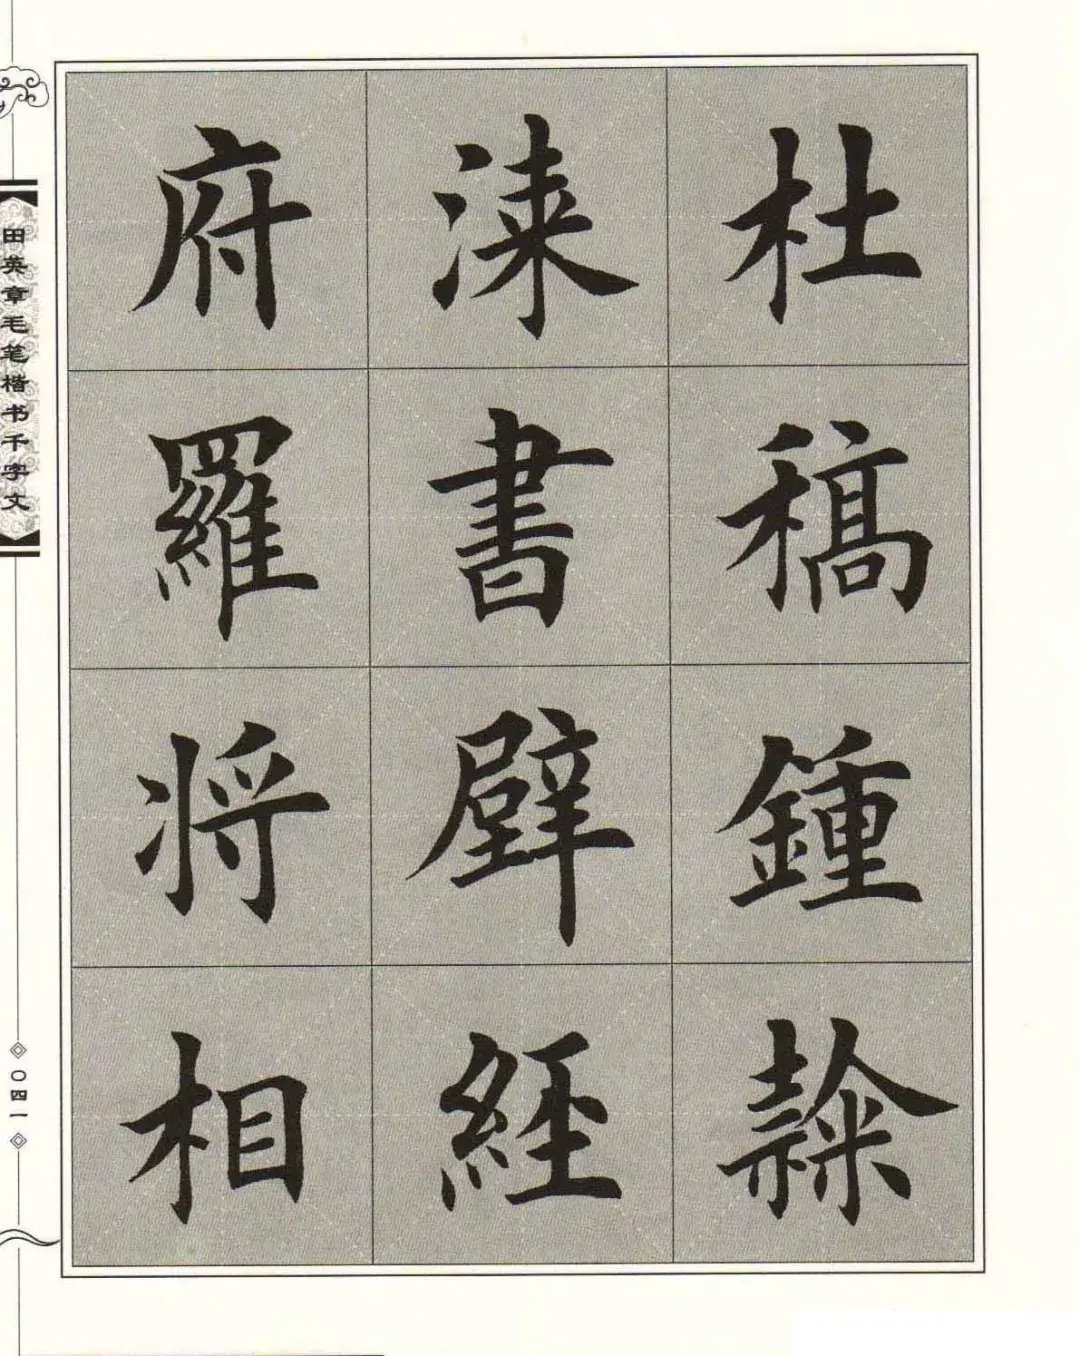 杜稿鍾隸
漆書壁經
府羅將相
田英章毛笔楷书千字文
〇四一